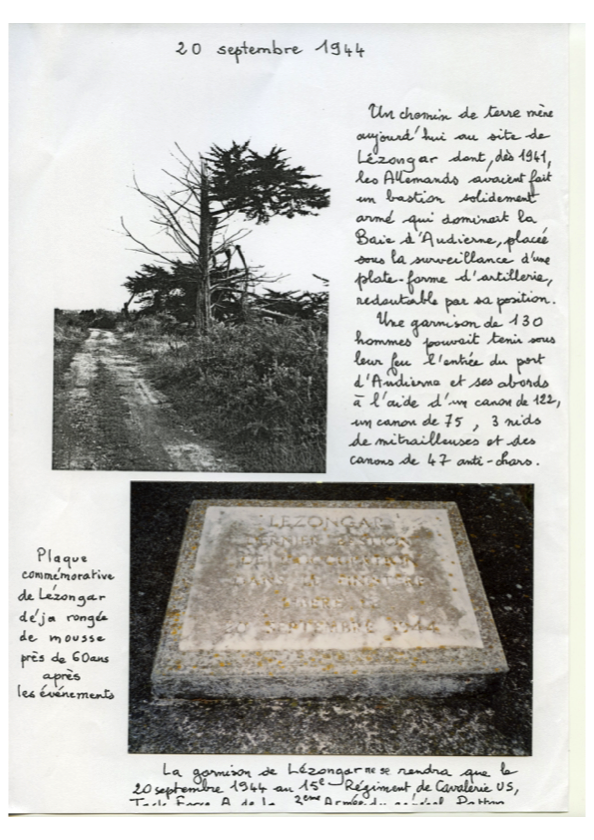 20 septembre 1944
Un chemin de terre mène
aujourd'hui au site de
Lézongar dont, dès 1941,
les Allemands avaient fait
un bastion solidement
armé qui dominait la
Baie d'Audierne, placée
sous la surveillance d'une
plate-forme d'artillerie,
redoutable par sa position.
Une garnison de 130
hommes pouvait tenir sous
leur feu l'entrée du port
d'Audierne et ses abords
à l'aide d'un canon de 122,
un canon de 75, 3 nids
de mitrailleuses et des
canons de 47 anti-chars.
LEZONGAR
DERNIER BASTION
DE L'OCCUPATION
DANS LE FINISTERE
LIBERE LE
20 SEPTEMBRE 1944
Plaque
commémorative
de Lézongar
déjà rongée
de mousse
près de 60 ans
après
les événements
La garnison de Lézongar ne se rendra que le
20 septembre 1944 au 15e Régiment de Cavalerie US,
Task Force A de la 2ème Armée du général Patton